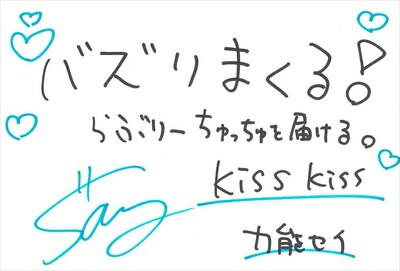 バズりまくる!
らぶりーちゅっちゅを届ける。
kiss kiss
力能セイ